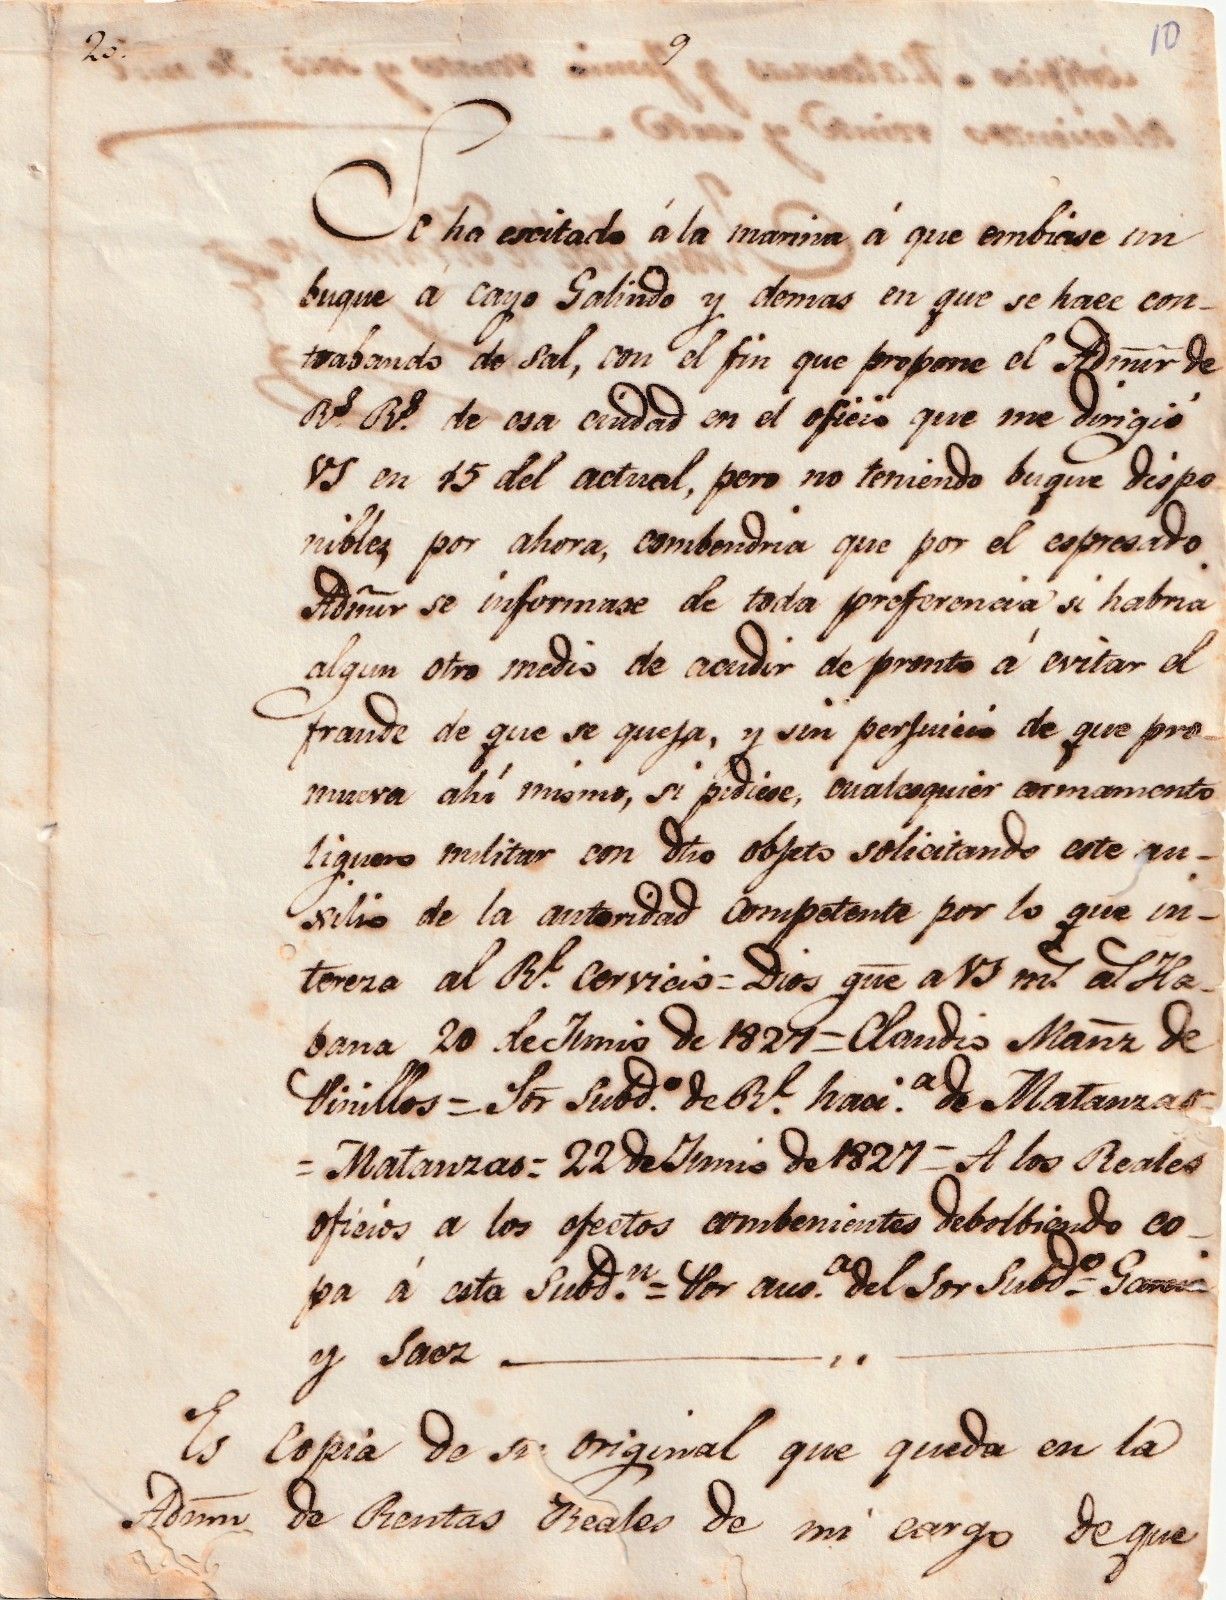 2o. 9 10
Se ha escitado á la marina á que embiase un
buque á cayo Galindo y demas en que se hace con-
trabando de sal, con el fin que propone el Admr̃ de
Rs. Rs. de esa ciudad en el oficio que me dirigió
VS en 15 del actual, pero no teniendo buque dispo
nibles, por ahora, combendria que por el espresado
Admr̃ se informase de toda preferencia si habria
algun otro medio de acudir de pronto á evitar el
fraude de que se queja, y sin perjuicio de que pro-
mueva ahí mismo, si pidiese, cualesquier armamento
ligero militar con dho objeto solicitando este au-
silio de la autoridad competente por lo que in-
tereza al Rl. Cervicio = Dios güe a VS ms. as. Ha-
bana 20 de Junio de 1827 = Claudio Mañz de
Pinillos = Sor̃ Subdo. de Rl. haci.a de Matanzas
= Matanzas = 22 de Junio de 1827 = A los Reales
oficios a los efectos combenientes debolbiendo co-
pa á esta Subd.n = Por aus.a del Sor Subdo = Garcia
y Saez
Es Copia de su original que queda en la
Admn̄ de Rentas Reales de mi cargo de que